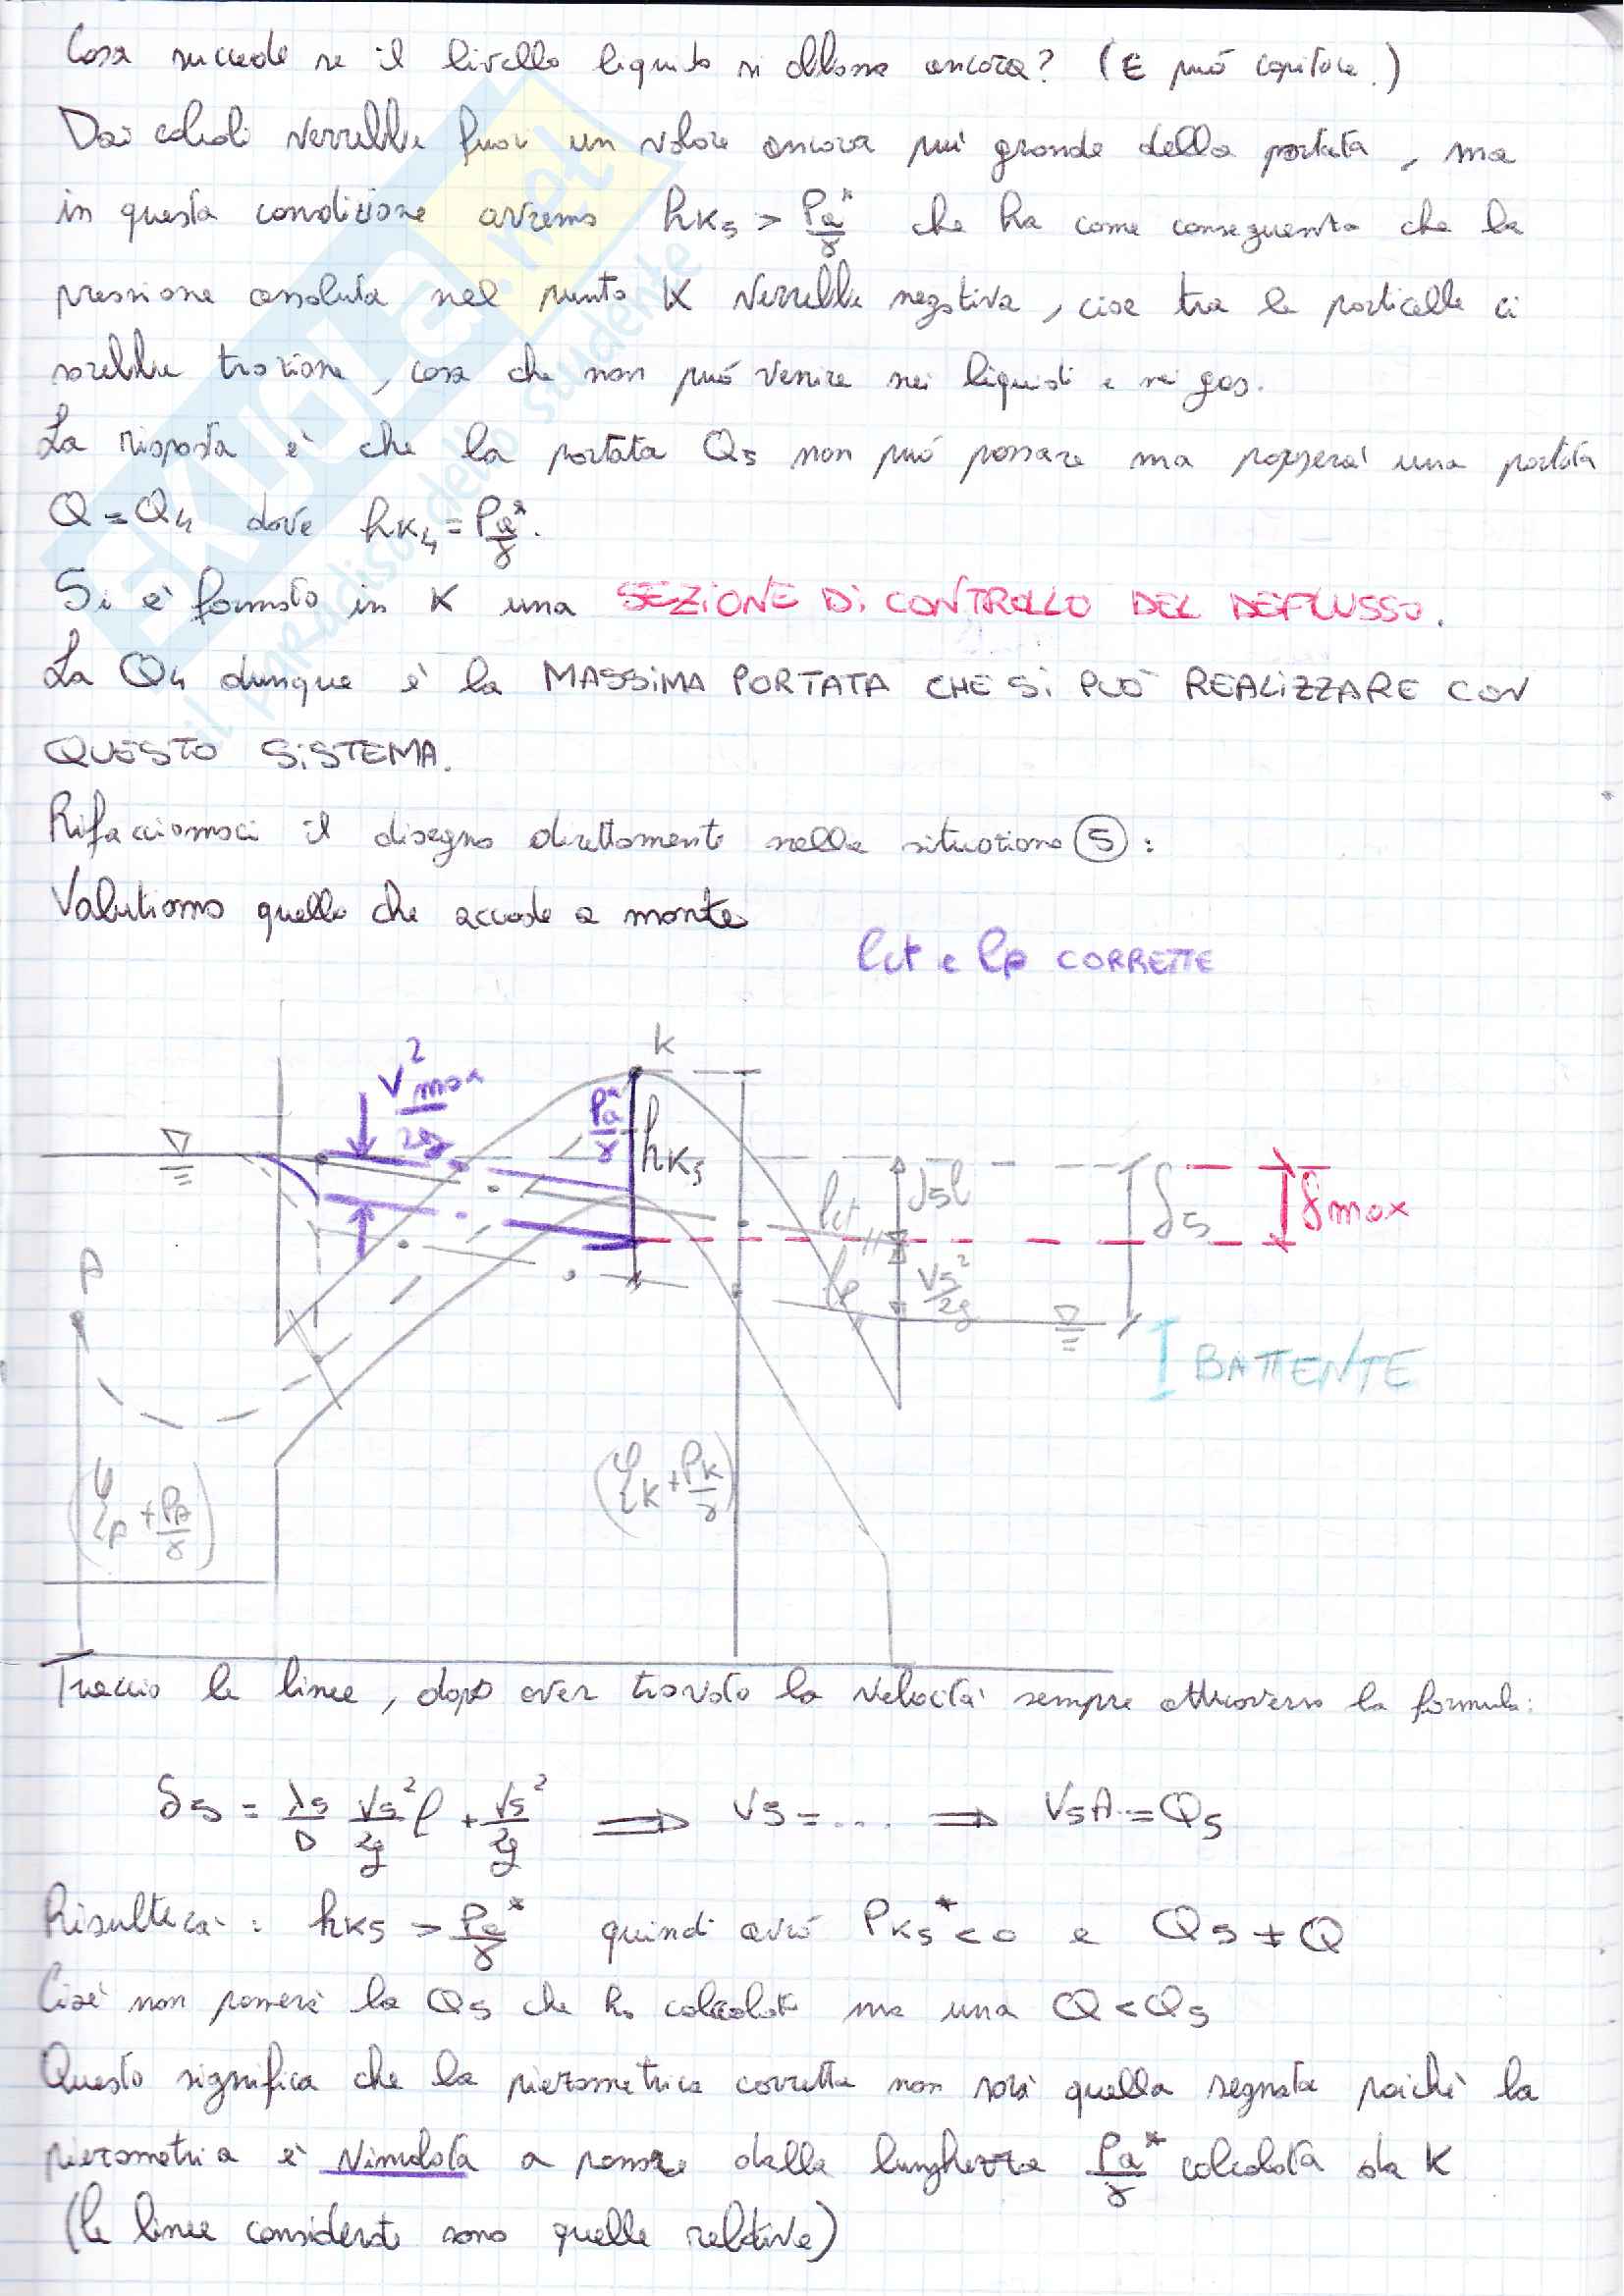 Cosa succede se il livello liquido si abbassa ancora? (E può capitare.)
Dai calcoli verrebbe fuori un valore ancora più grande della portata, ma
in questa condizione avremo hK5 > Pa*/γ che ha come conseguenza che la
pressione assoluta nel punto K verrebbe negativa, cioè tra le particelle ci
sarebbe trazione, cosa che non può venire nei liquidi e nei gas.
La risposta è che la portata Q5 non può passare ma passerà una portata
Q = Q4 dove hK4 = Pa*/γ.
Si è formato in K una SEZIONE DI CONTROLLO DEL DEFLUSSO.
La Q4 dunque è la MASSIMA PORTATA CHE SI PUÒ REALIZZARE CON
QUESTO SISTEMA.
Rifacciamoci il disegno direttamente nella situazione 5:
Valutiamo quello che accade a monte
lct e lp CORRETTE
K
V²max/2g
Pa*/γ
hK5
J5l
δ5
δmax
lct
lp
V5²/2g
A
BATTENTE
(ζK + PK/γ)
(ζA + PA/γ)
Traccio le linee, dopo aver trovato la velocità sempre attraverso la formula:
δ5 = λ5/D V5²/2g l + V5²/2g ⟹ V5 = .... ⟹ V5A = Q5
Risulterà: hK5 > Pa*/γ quindi avrò PK5* < 0 e Q5 ≠ Q
Cioè non passerà la Q5 che ho calcolato ma una Q < Q5
Questo significa che la piezometrica corretta non sarà quella segnata poichè la
piezometria è vincolata a passare dalla lunghezza Pa*/γ calcolata da K
(le linee considerate sono quelle relative)
EKUIa.net
il paradiso dello studente